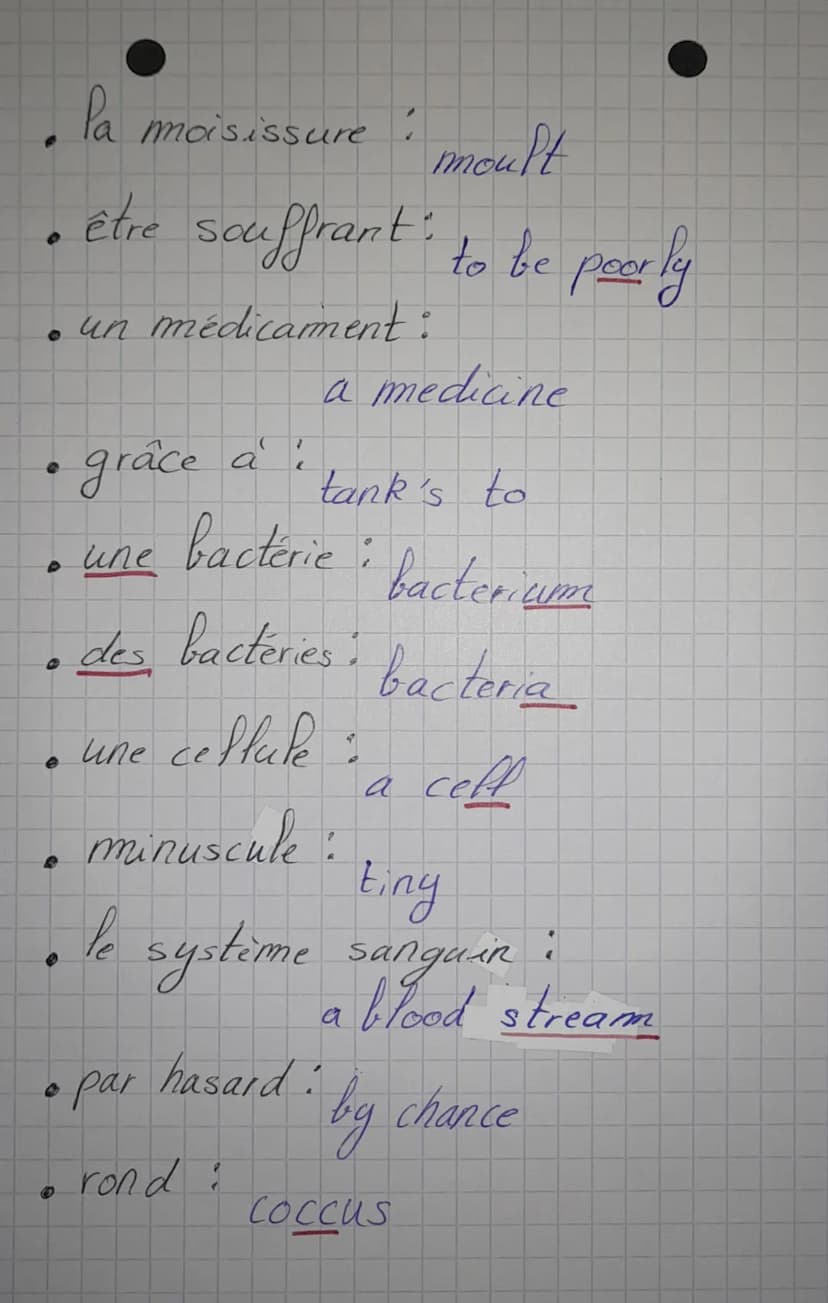 • la moisissure :
moult
• être souffrant :
to be poorly
• un médicamment :
a medicine
• grâce à :
tank's to
• une bactérie :
bacterium
• des bactéries :
bacteria
• une cellule :
a cell
• minuscule :
tiny
• le système sanguin :
a blood stream
• par hasard :
by chance
• rond :
coccus